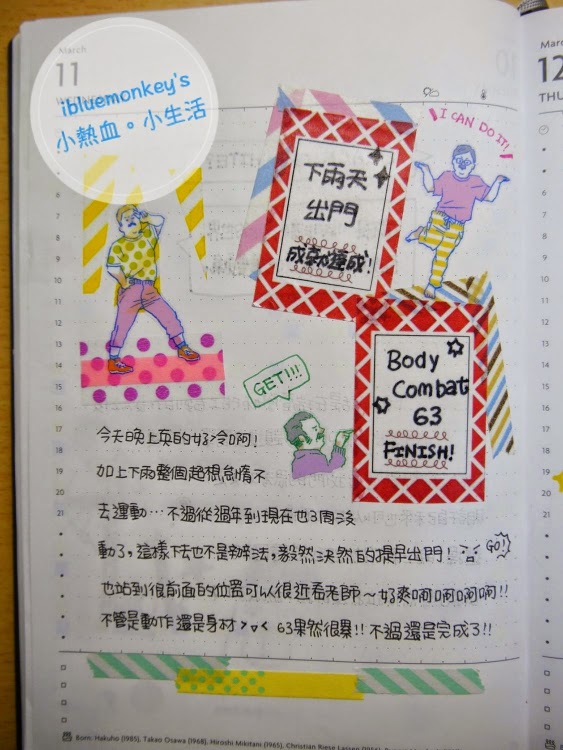 March
11
ibluemonkey's
小熱血。小生活
I CAN DO IT!
下雨天
出門
成就達成!
Body
Combat
63
FINISH!
GET!!!
今天晚上真的好冷啊!
加上下雨整個超想怠惰不
去運動…不過從過年到現在也3周沒
動了,這樣下去也不是辦法,毅然決然的提早出門! GO!
也站到很前面的位置可以很近看老師~好爽啊啊啊啊!!
不管是動作還是身材>▽< 63果然很暴!!不過還是完成了!!
6
7
8
9
10
11
12
13
14
15
16
17
18
19
20
21
Born: Hakuho (1985), Takao Osawa (1968), Hiroshi Mikitani (1965), Christian Riese Lassen
Mar
12
THU